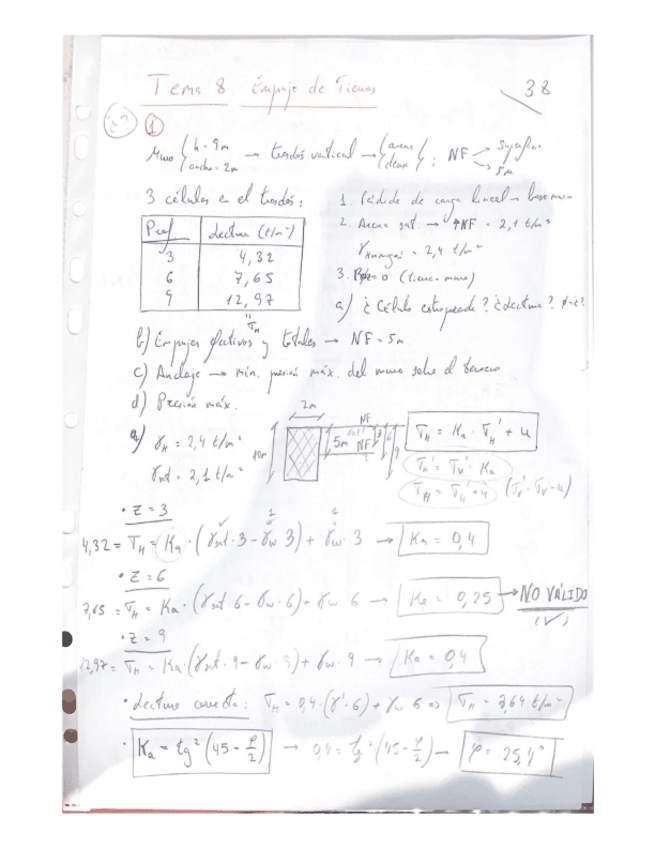 Tema 8 Empuje de Tierras
38
¿? 1
Muro { h = 9m ancho = 2m → trasdós vertical → { arena densa } ; NF superficie 5m
3 células en el trasdós:
Prof. lectura (t/m²)
3 4,32
6 7,65
9 12,97
" σH
1. Pérdida de carga lineal → base muro
2. Arena sat. → NF = 2,1 t/m³
γHormigón = 2,4 t/m²
3. = 0 (tierra-muro)
a) ¿Célula estropeada? ¿lectura? φ=¿?
b) Empujes efectivos y totales → NF = 5m
c) Anclaje → mín. presión máx. del muro sobre el terreno
d) Presión máx.
a) γH = 2,4 t/m²
γsat = 2,1 t/m²
2m
10m
NF
5m NF
3 6 9
σH = Ka · σH' + u
σH' = σV' · Ka
σH = σH' + u (σV' = σV - u)
• z = 3
4,32 = σH = Ka · (γsat · 3 - γw 3) + γw · 3 → Ka = 0,4
1 1
• z = 6
7,65 = σH = Ka · (γsat 6 - γw · 6) + γw 6 → Ka = 0,25 → NO VÁLIDO
(✓)
• z = 9
12,97 = σH = Ka · (γsat · 9 - γw · 9) + γw · 9 → Ka = 0,4
• Lectura correcta: σH = 0,4 · (γ' · 6) + γw 6 => σH = 8,64 t/m²
• Ka = tg² (45 - φ/2) → 0,4 = tg² (45 - φ/2) → φ = 25,4°